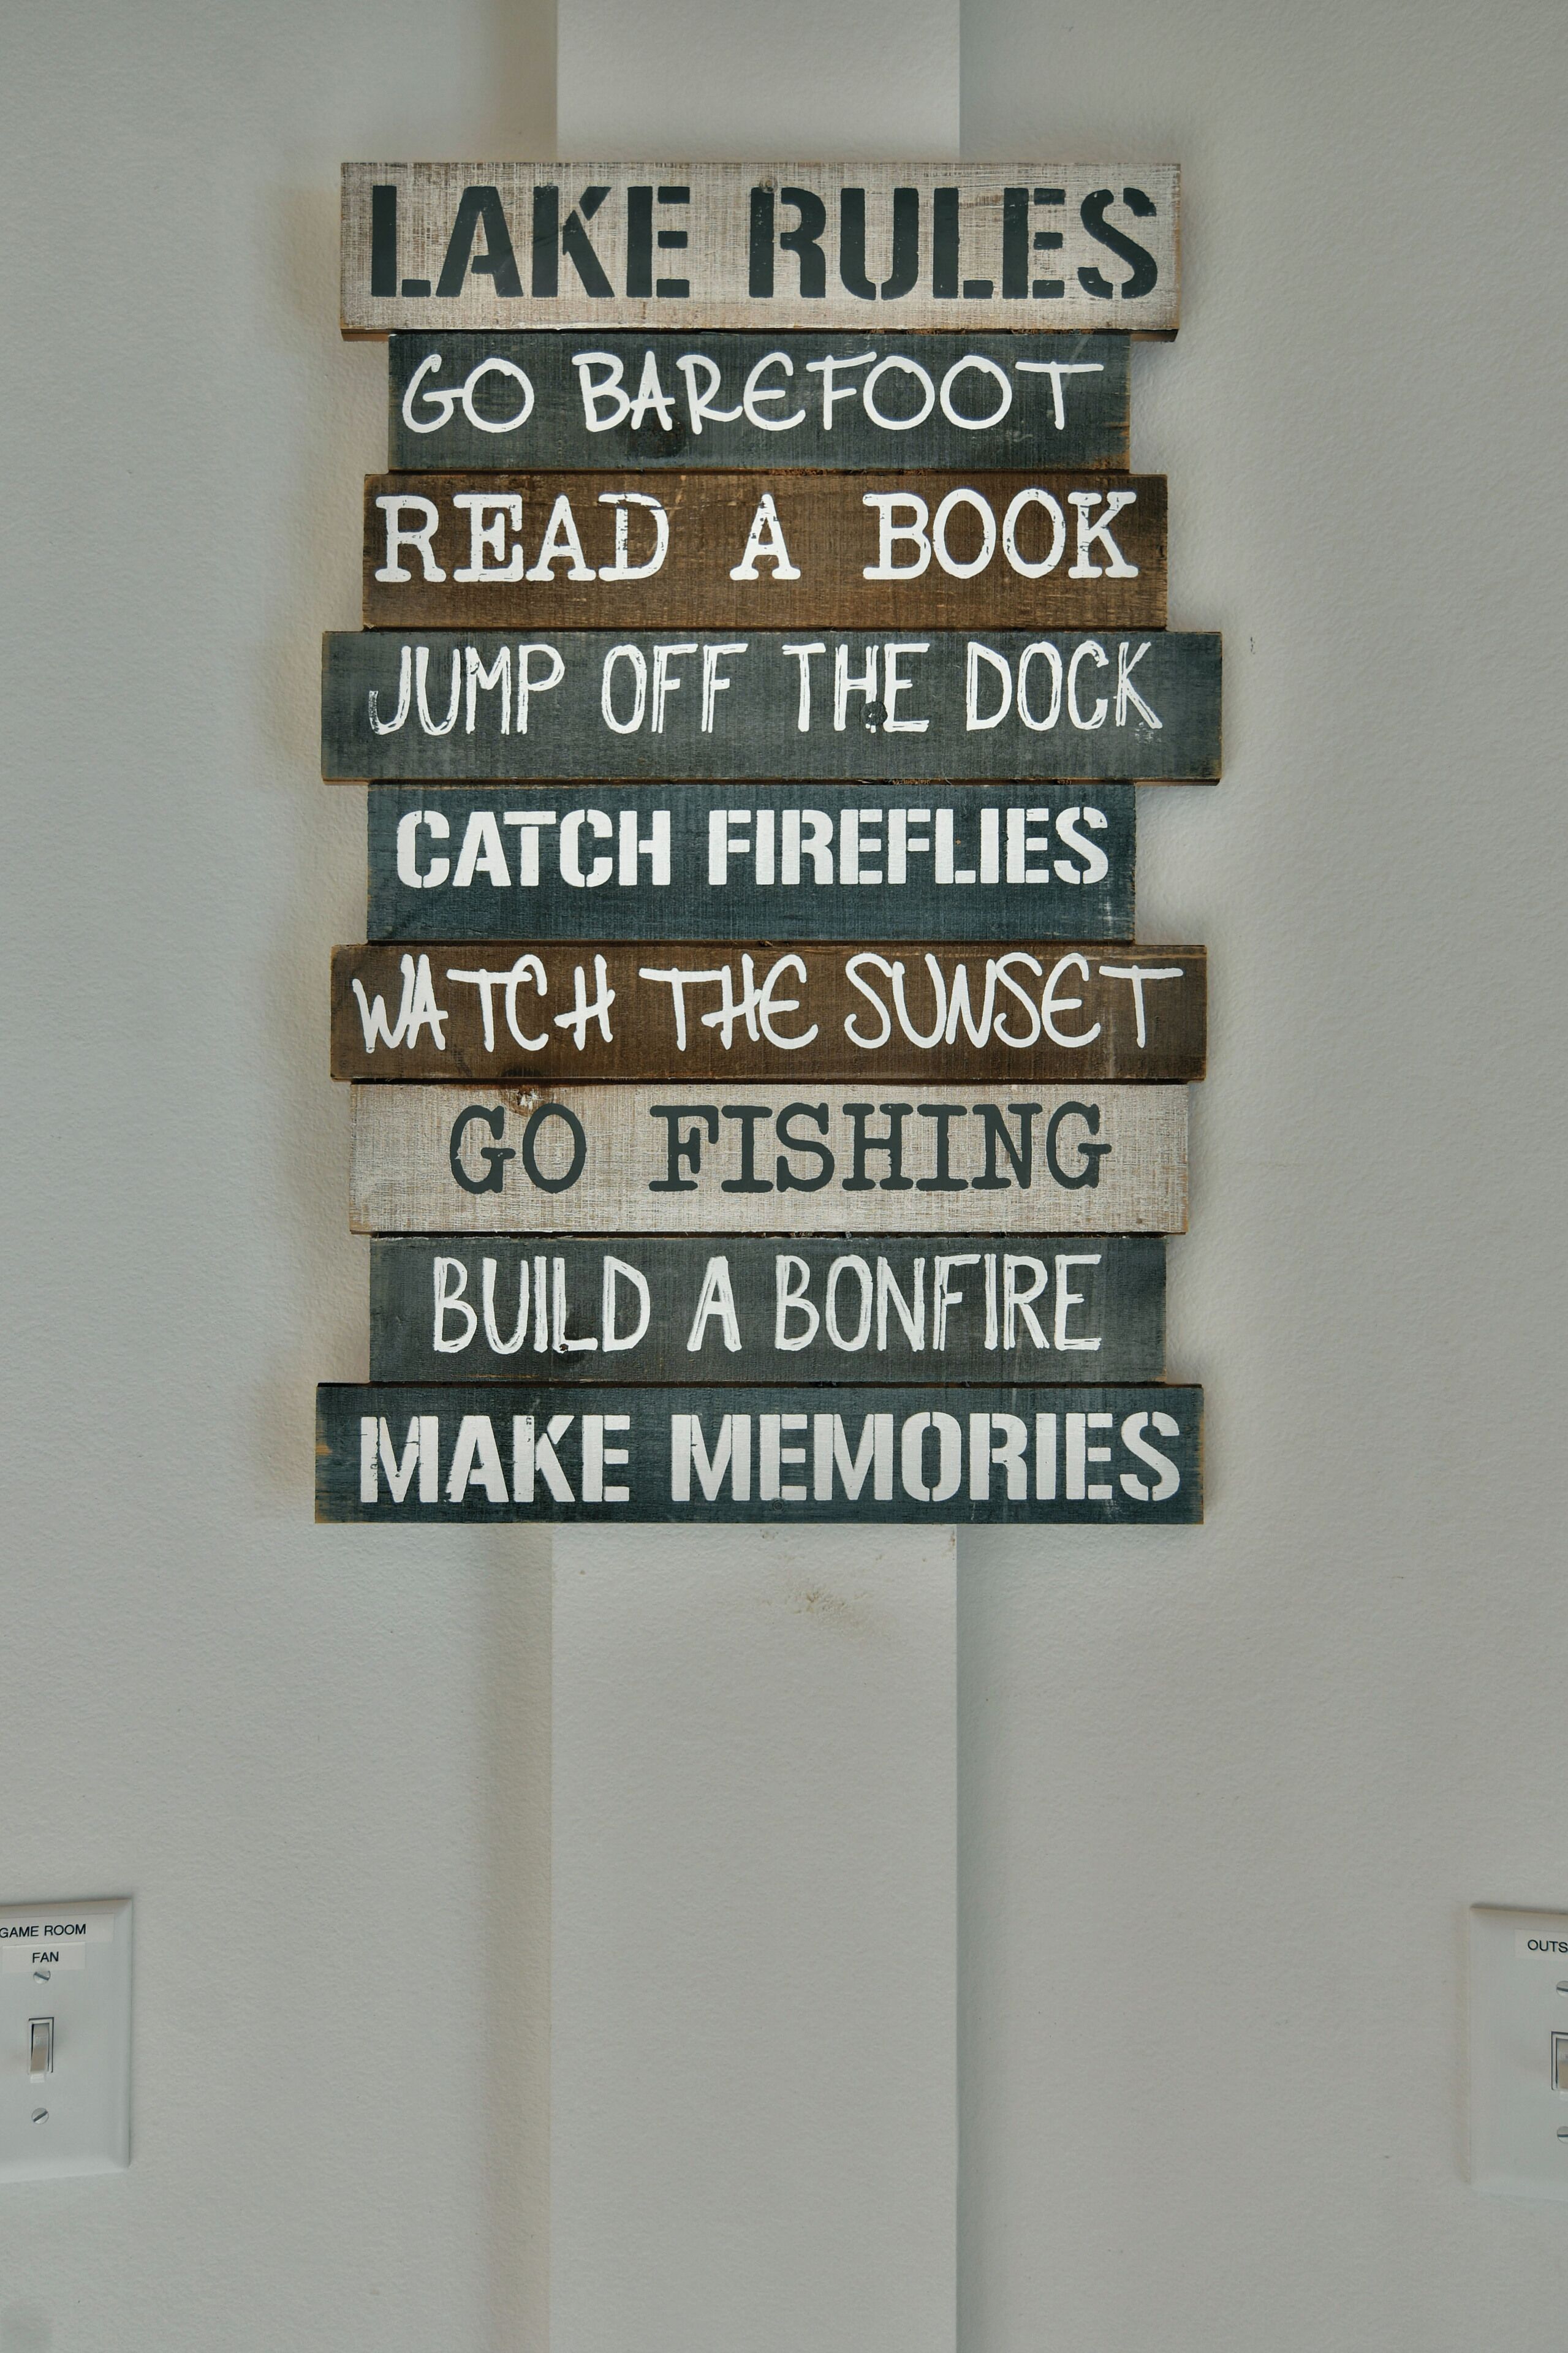 LAKE RULES
GO BAREFOOT
READ A BOOK
JUMP OFF THE DOCK
CATCH FIREFLIES
WATCH THE SUNSET
GO FISHING
BUILD A BONFIRE
MAKE MEMORIES
GAME ROOM
FAN